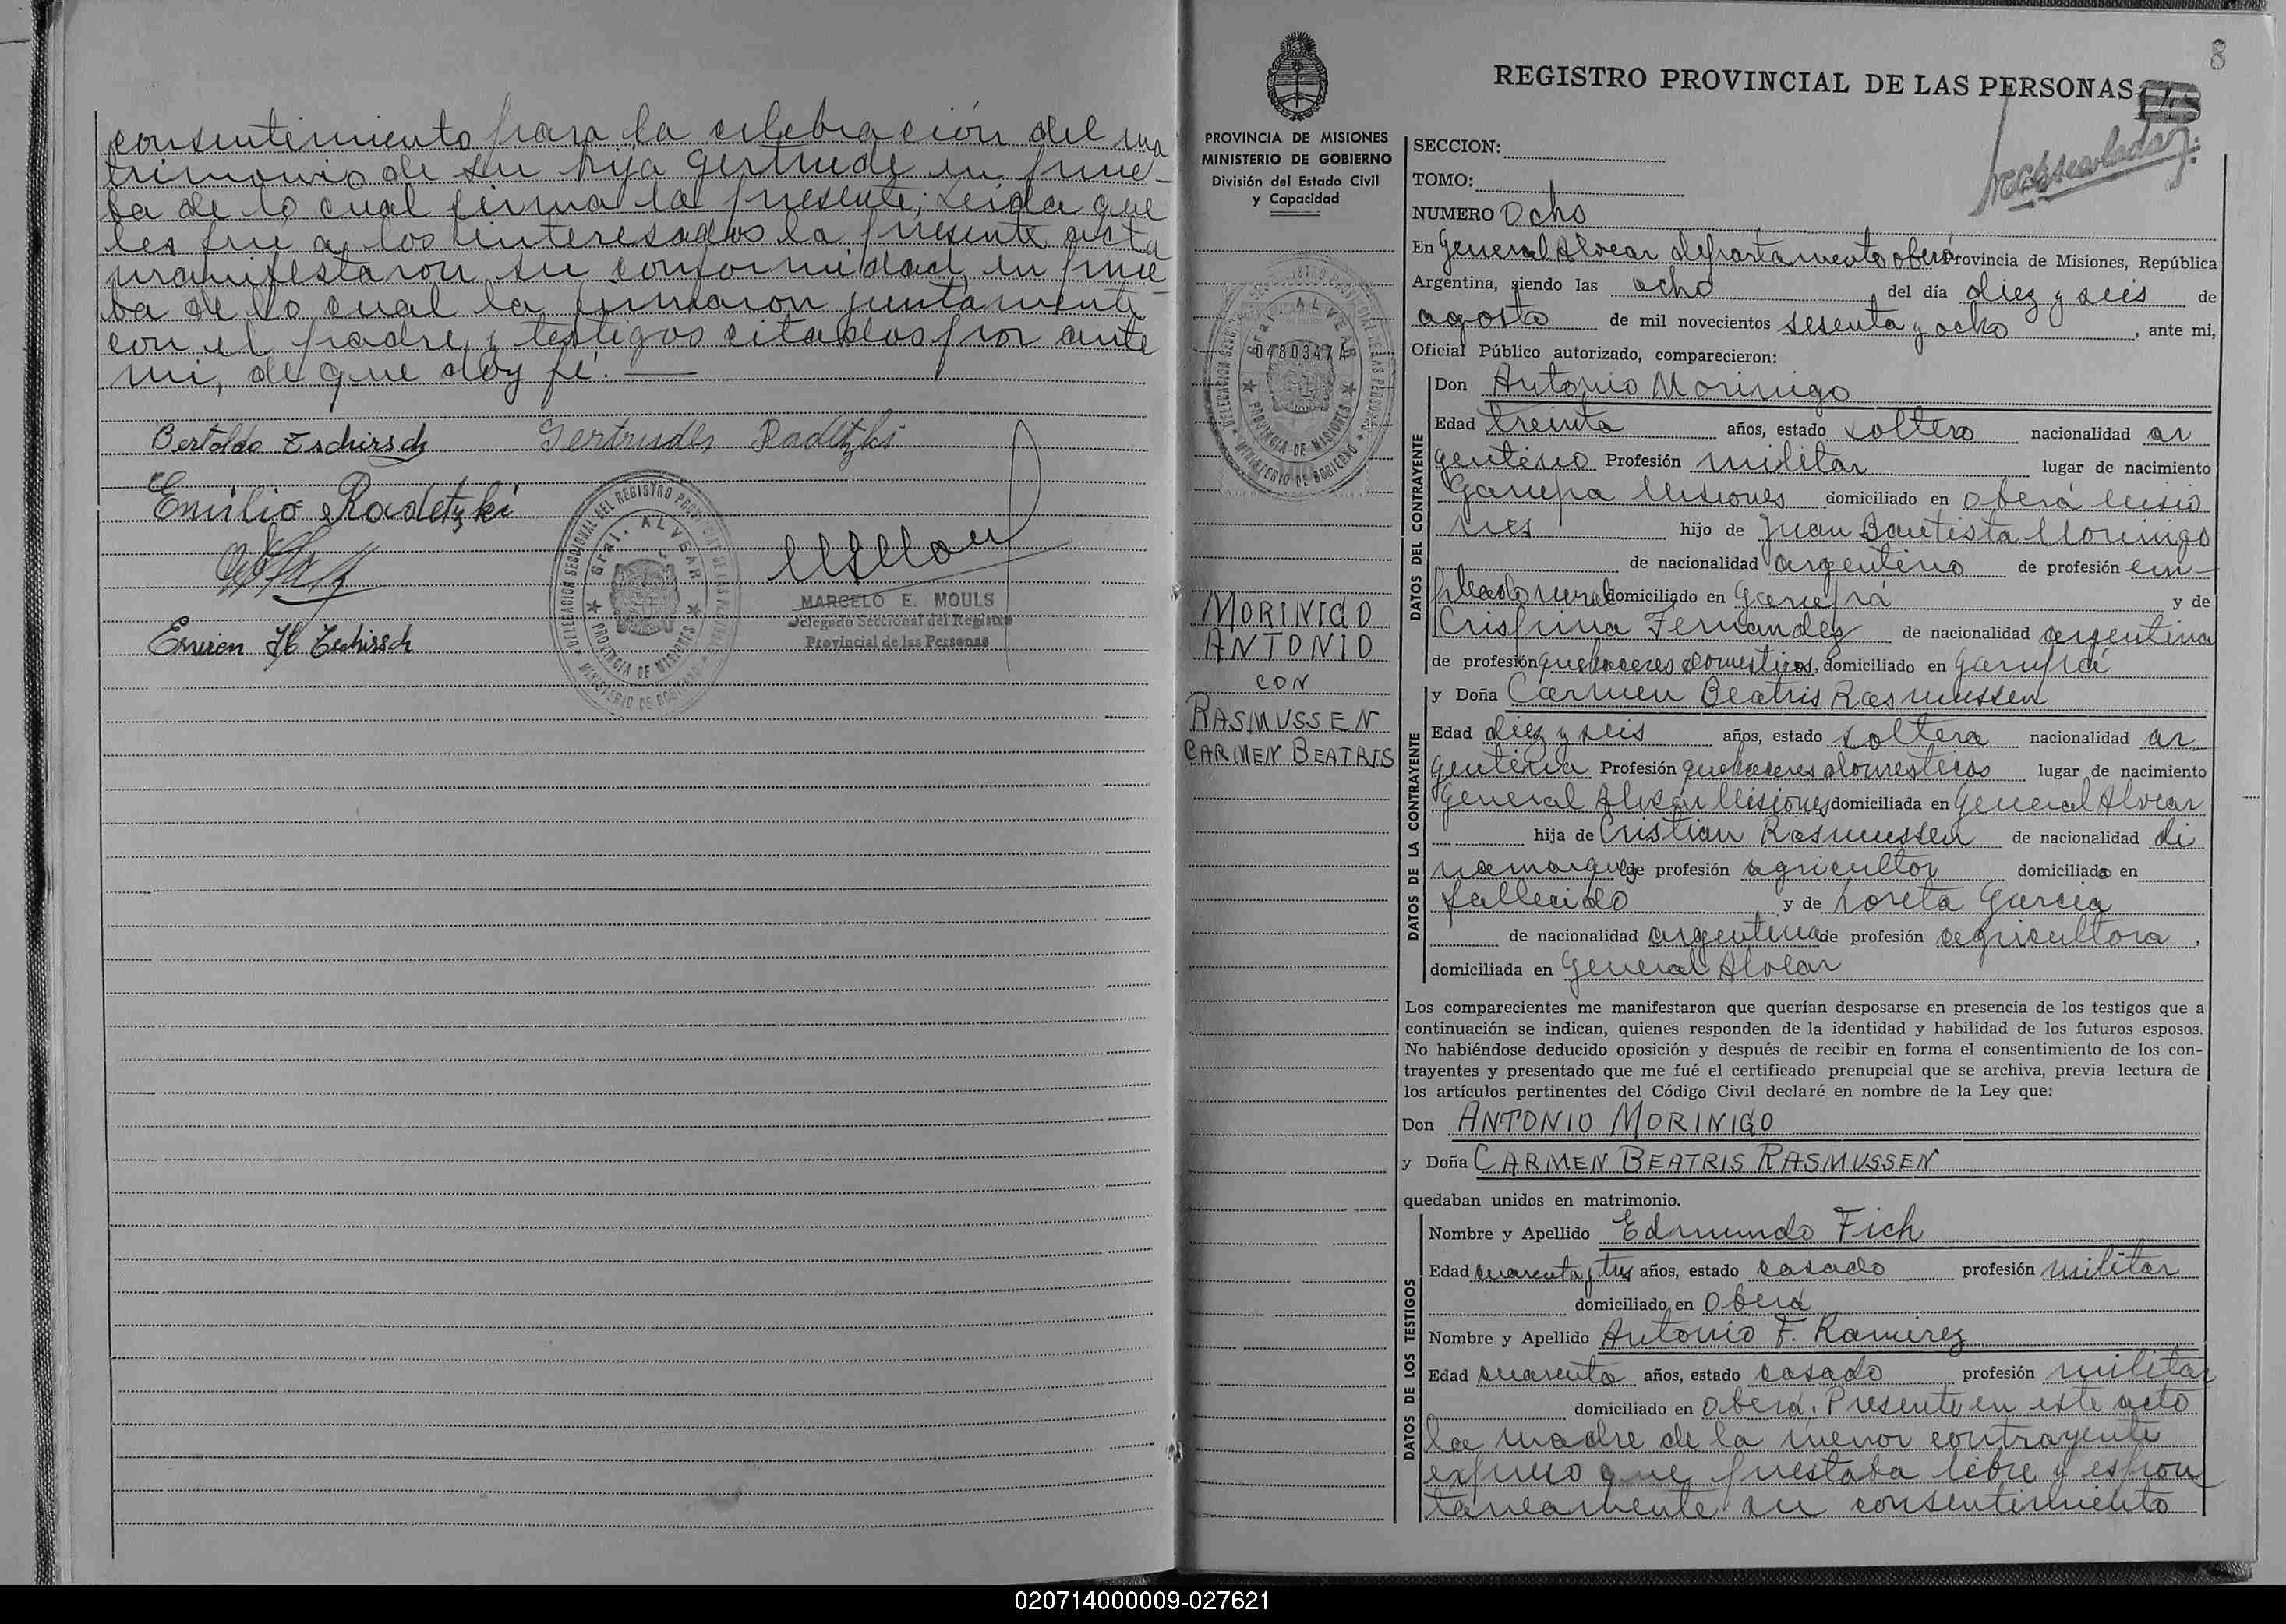 consentimiento para la celebración del ma
trimonio de su hija Gertrude en prue-
ba de lo cual firma la presente; Leida que
les fué a los interesados la presente acta
manifestaron su conformidad en prue-
ba de lo cual la firmaron juntamente
con el padre y testigos citados por ante
mi, de que doy fé.
Bertoldo Zschirsch Gertrudes Radetzki
Emilio Radetzki
MARCELO E. MOULS
Delegado Seccional del Registro
Provincial de las Personas
DELEGACION SECCIONAL DEL REGISTRO PROVINCIAL DE LAS PERSONAS
Gral. ALVEAR
PROVINCIA DE MISIONES
MINISTERIO DE GOBIERNO
8
REGISTRO PROVINCIAL DE LAS PERSONAS
148
PROVINCIA DE MISIONES
MINISTERIO DE GOBIERNO
División del Estado Civil
y Capacidad
Gral. ALVEAR
0480347A
PROVINCIA DE MISIONES
MINISTERIO DE GOBIERNO
MORINIGO
ANTONIO
CON
RASMUSSEN
CARMEN BEATRIS
SECCION:
TOMO:
NUMERO Ocho
En General Alvear departamento oberá Provincia de Misiones, República
Argentina, siendo las ocho del día diez y seis de
agosto de mil novecientos sesenta y ocho, ante mi,
Oficial Público autorizado, comparecieron:
DATOS DEL CONTRAYENTE
Don Antonio Morinigo
Edad treinta años, estado soltero nacionalidad ar
gentino Profesión militar lugar de nacimiento
Garupa Misiones domiciliado en Oberá Misio
nes hijo de Juan Bautista Morinigo
de nacionalidad argentino de profesión em-
pleado rural domiciliado en Garupá y de
Crispina Fernandez de nacionalidad argentina
de profesión quehaceres domesticos, domiciliado en Garupá
DATOS DE LA CONTRAYENTE
y Doña Carmen Beatris Rasmussen
Edad diez y seis años, estado soltera nacionalidad ar
gentina Profesión quehaceres domesticos lugar de nacimiento
General Alvear Misiones domiciliada en General Alvear
hija de Cristian Rasmussen de nacionalidad di
namarques de profesión agricultor domiciliado en
fallecido y de Loreta Garcia
de nacionalidad argentina de profesión agricultora,
domiciliada en General Alvear
Los comparecientes me manifestaron que querían desposarse en presencia de los testigos que a
continuación se indican, quienes responden de la identidad y habilidad de los futuros esposos.
No habiéndose deducido oposición y después de recibir en forma el consentimiento de los con-
trayentes y presentado que me fué el certificado prenupcial que se archiva, previa lectura de
los artículos pertinentes del Código Civil declaré en nombre de la Ley que:
Don ANTONIO MORINIGO
y Doña CARMEN BEATRIS RASMUSSEN
quedaban unidos en matrimonio.
DATOS DE LOS TESTIGOS
Nombre y Apellido Edmundo Fich
Edad cuarenta y tres años, estado casado profesión militar
domiciliado en Oberá
Nombre y Apellido Antonio F. Ramirez
Edad cuarenta años, estado casado profesión militar
domiciliado en Oberá. Presente en este acto
la madre de la menor contrayente
expreso que prestaba libre y espon
taneamente su consentimiento
020714000009-027621